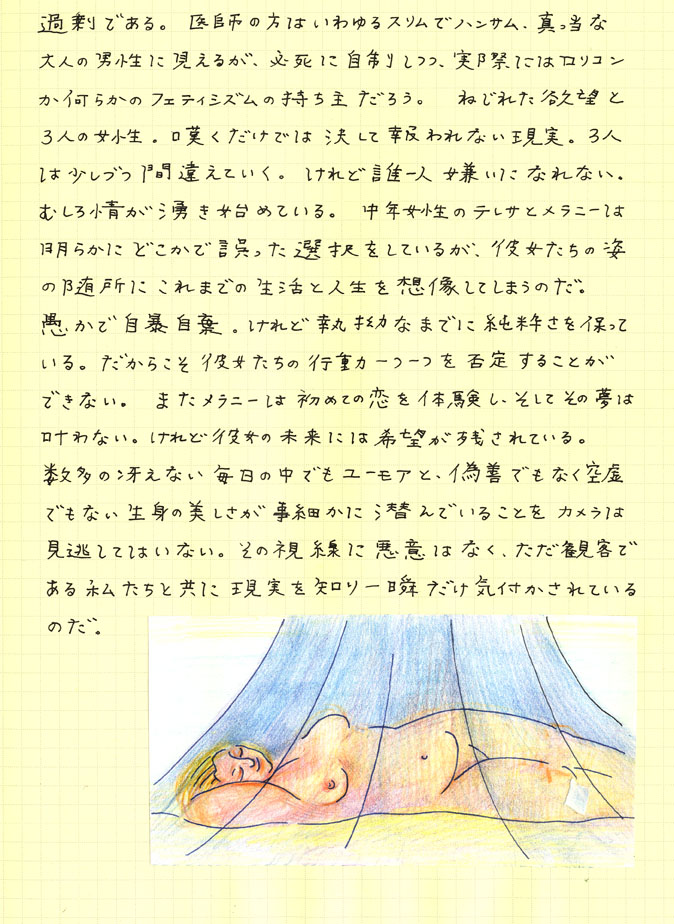 過剰である。 医師の方はいわゆるスリムでハンサム、真っ当な
大人の男性に見えるが、必死に自制しつつ、実際にはロリコン
か何らかのフェティシズムの持ち主だろう。 ねじれた欲望と
3人の女性。嘆くだけでは決して報われない現実。3人
は少しづつ間違えていく。 けれど誰一人嫌いになれない。
むしろ情が湧き始めている。 中年女性のテレサとメラニーは
明らかにどこかで誤った選択をしているが、彼女たちの姿
の随所にこれまでの生活と人生を想像してしまうのだ。
愚かで自暴自棄。けれど執拗なまでに純粋さを保って
いる。だからこそ彼女たちの行動一つ一つを否定することが
できない。 またメラニーは初めての恋を体験し、そしてその夢は
叶わない。けれど彼女の未来には希望が残されている。
数多の冴えない毎日の中でもユーモアと、偽善でもなく空虚
でもない生身の美しさが事細かに潜んでいることをカメラは
見逃してはいない。その視線に悪意はなく、ただ観客で
ある私たちと共に現実を知り一瞬だけ気付かされている
のだ。